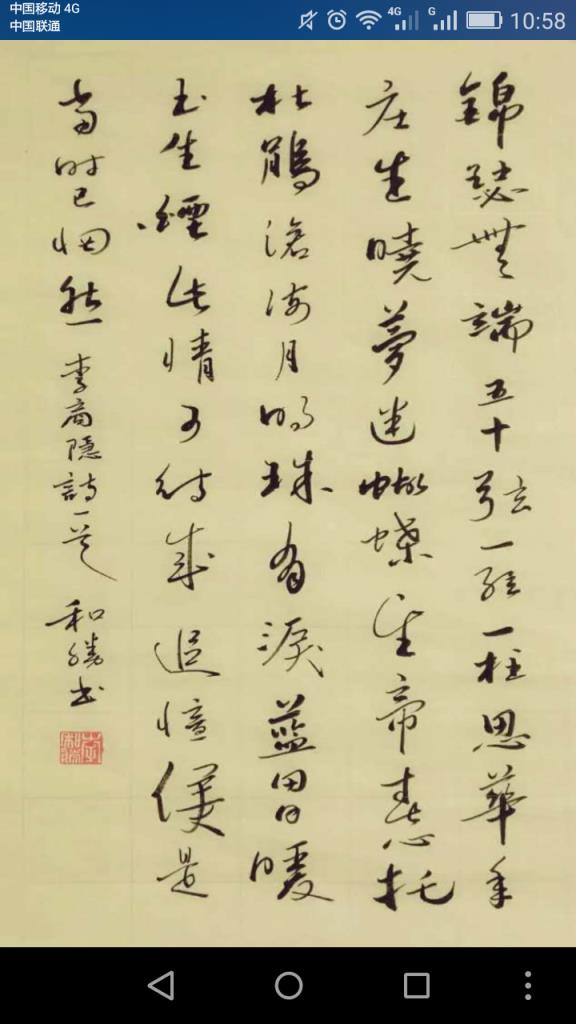 中国移动 4G
中国联通
4G G 10:58
錦瑟無端五十弦一絃一柱思華年
庄生曉夢迷蝴蝶望帝春心托
杜鵑滄海月明珠有淚藍田日暖
玉生煙此情可待成追憶便是
當時已惘然 李商隱詩一首 和勝書